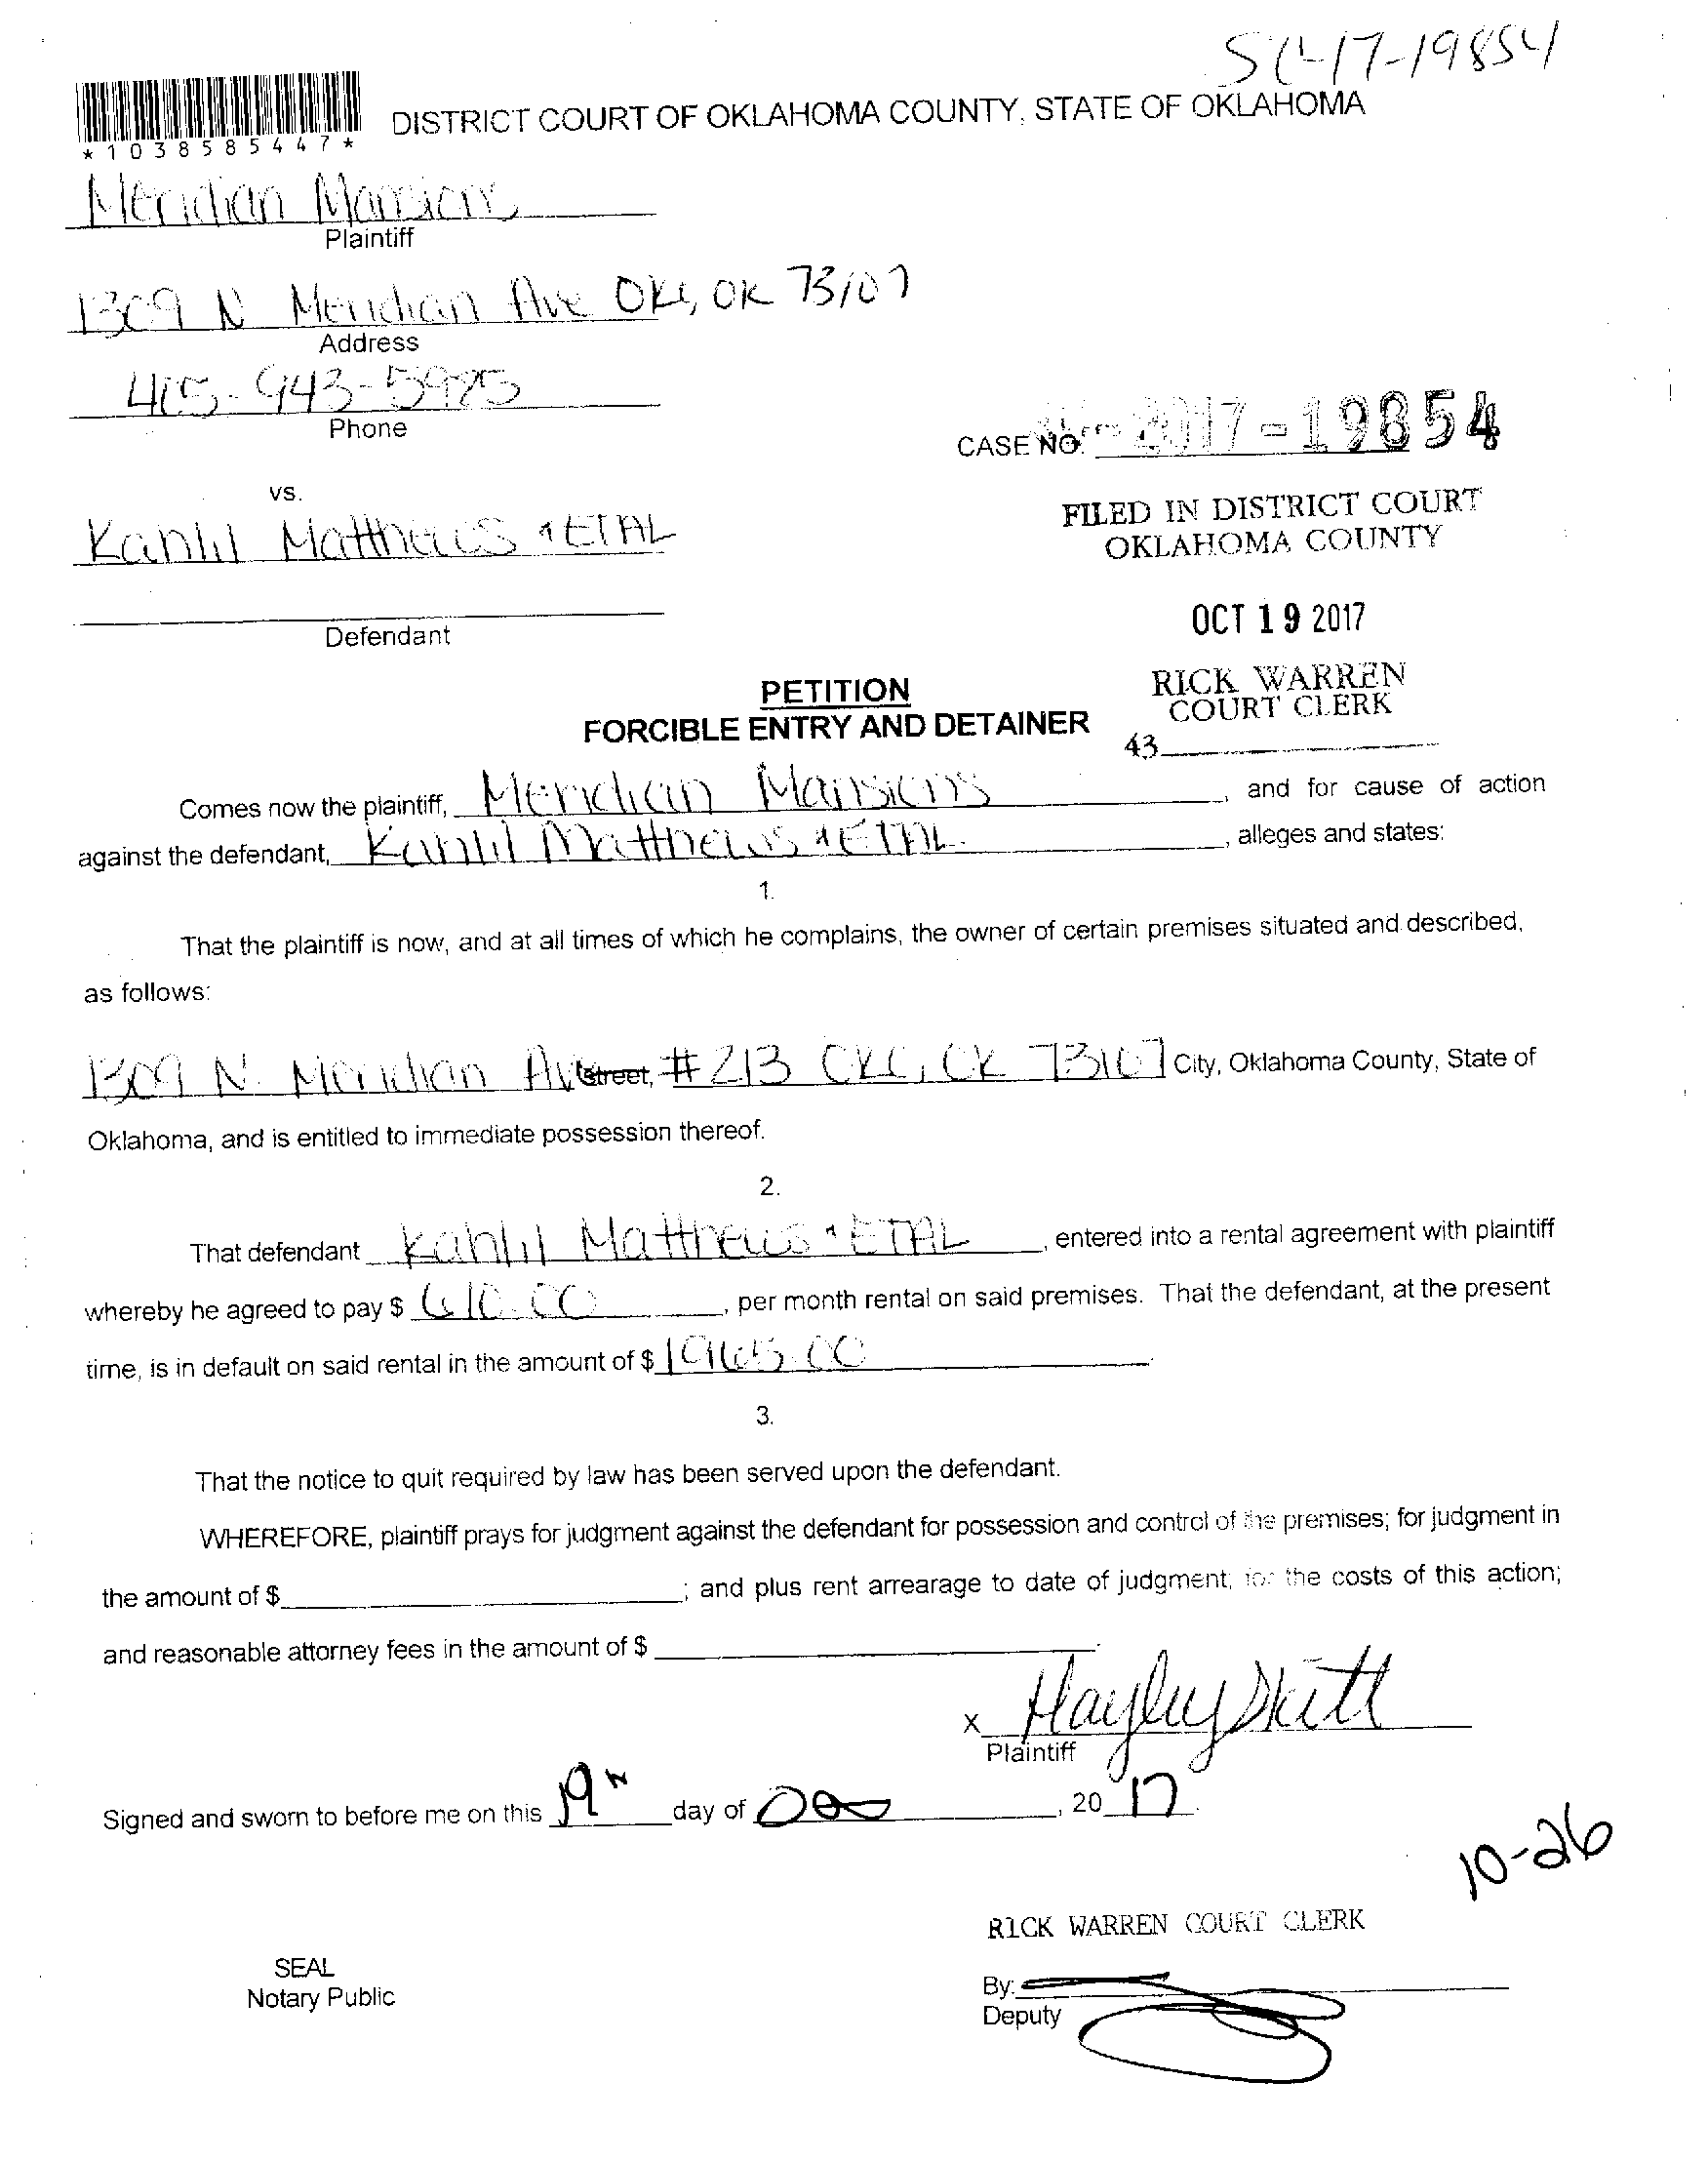 SC-17-19854
*1038585447*
DISTRICT COURT OF OKLAHOMA COUNTY, STATE OF OKLAHOMA
Meridian Mansions
Plaintiff
1309 N Meridian Ave OKC, OK 73107
Address
405-943-5985
Phone
CASE NO. -2017-19854
vs.
Kahlil Matthews & ETAL
FILED IN DISTRICT COURT
OKLAHOMA COUNTY
Defendant
OCT 19 2017
PETITION
FORCIBLE ENTRY AND DETAINER
RICK WARREN
COURT CLERK
43
Comes now the plaintiff, Meridian Mansions, and for cause of action
against the defendant, Kahlil Matthews & ETAL., alleges and states:
1.
That the plaintiff is now, and at all times of which he complains, the owner of certain premises situated and described,
as follows:
1309 N. Meridian Ave Street, #213 OKC, OK 73107 City, Oklahoma County, State of
Oklahoma, and is entitled to immediate possession thereof.
2.
That defendant Kahlil Matthews & ETAL, entered into a rental agreement with plaintiff
whereby he agreed to pay $ 610.00, per month rental on said premises. That the defendant, at the present
time, is in default on said rental in the amount of $ 1965.00
3.
That the notice to quit required by law has been served upon the defendant.
WHEREFORE, plaintiff prays for judgment against the defendant for possession and control of the premises; for judgment in
the amount of $ ; and plus rent arrearage to date of judgment; for the costs of this action;
and reasonable attorney fees in the amount of $
x Hayley
Plaintiff
Signed and sworn to before me on this 19th day of , 20 17
10-26
RICK WARREN COURT CLERK
SEAL
Notary Public
By:
Deputy